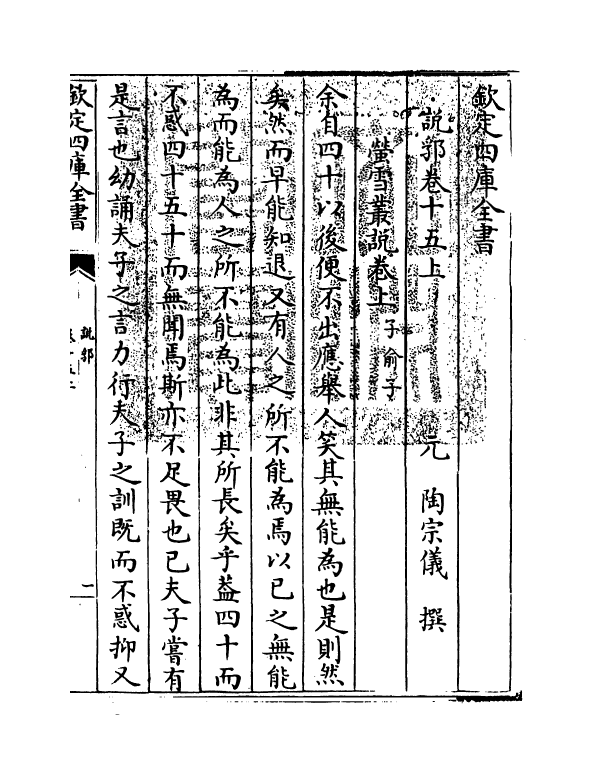 欽定四庫全書
說郛卷十五上　元　陶宗儀　撰
螢雪叢説卷上　子俞子
余自四十以後便不出應舉人笑其無能為也是則然
矣然而早能知退又有人之所不能為焉以已之無能
為而能為人之所不能為此非其所長矣乎葢四十而
不惑四十五十而無聞焉斯亦不足畏也已夫子嘗有
是言也幼誦夫子之言力行夫子之訓既而不惑抑又
欽定四庫全書
說郛
一